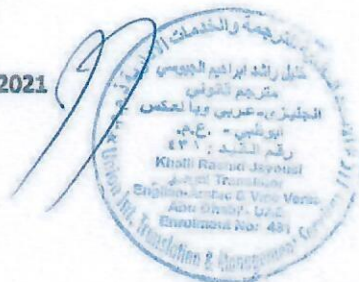 2021
للترجمة والخدمات
خليل راشد ابراهيم الجيوسي
مترجم قانوني
انجليزي-عربي وبالعكس
ابوظبي - ا.ع.م.
رقم القيد : ٤٣١
Khalil Rashid Jayousi
Legal Translator
English-Arabic & Vice Versa
Abu Dhabi- UAE
Enrolment No: 431
Union Int. Translation & Management